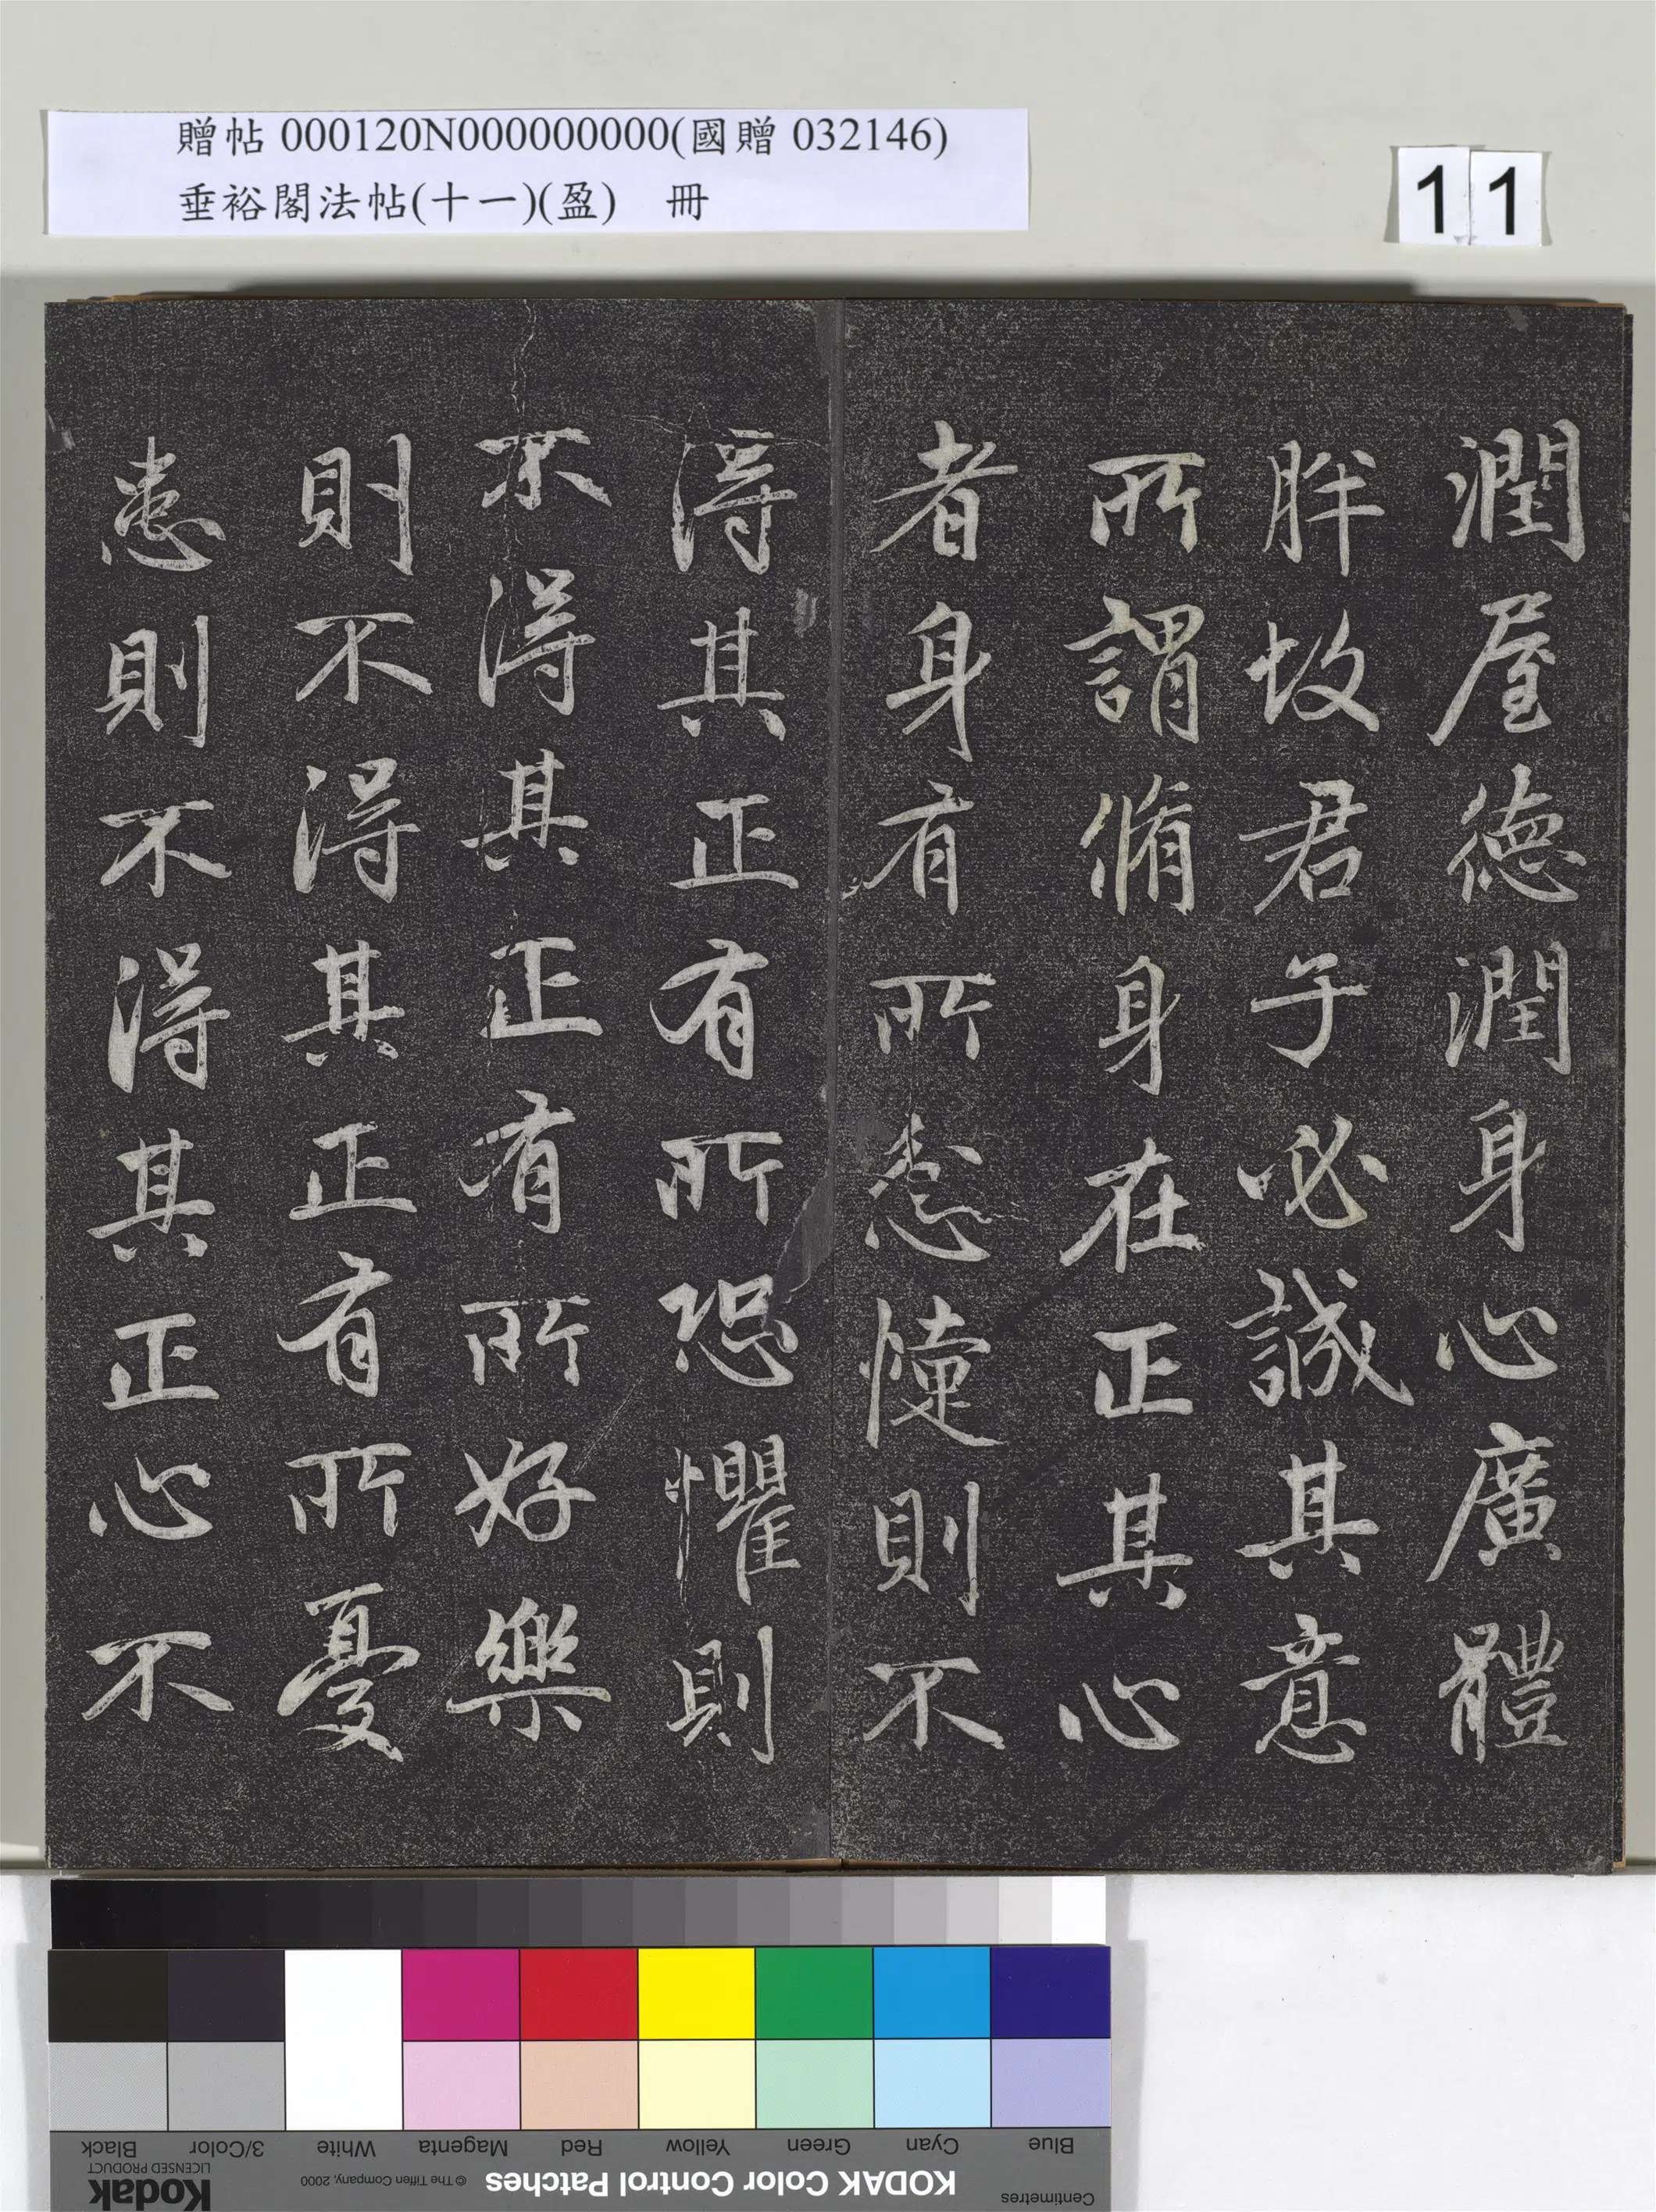 贈帖 000120N000000000(國贈 032146)
垂裕閣法帖(十一)(盈) 冊
11
潤屋德潤身心廣體
胖故君子必誠其意
所謂脩身在正其心
者身有所忿懥則不
得其正有所恐懼則
不得其正有所好樂
則不得其正有所憂
患則不得其正心不
Black
3/Color
White
Magenta
Red
Yellow
Green
Cyan
Blue
Kodak
LICENSED PRODUCT
© The Tiffen Company, 2000
KODAK Color Control Patches
Centimetres